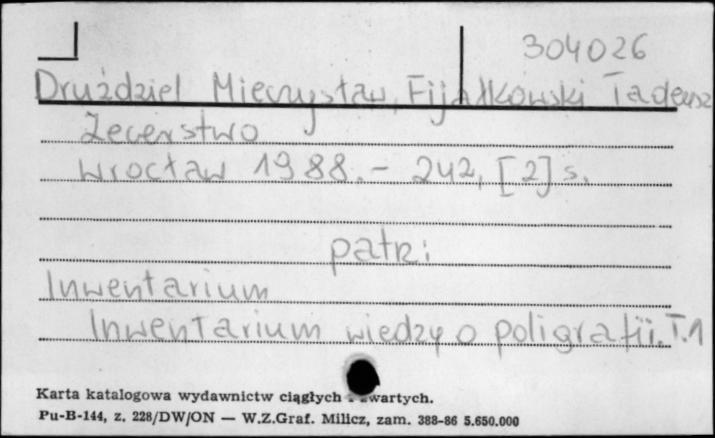 304026
Drużdziel Mieczysław, Fijałkowski Tadeusz
Zecerstwo
Wrocław 1988. - 242, [2] s.
patrz:
Inwentarium
Inwentarium wiedzy o poligrafii. T. 1
Karta katalogowa wydawnictw ciągłych i zwartych.
Pu-B-144, z. 228/DW/ON — W.Z.Graf. Milicz, zam. 388-86 5.650.000